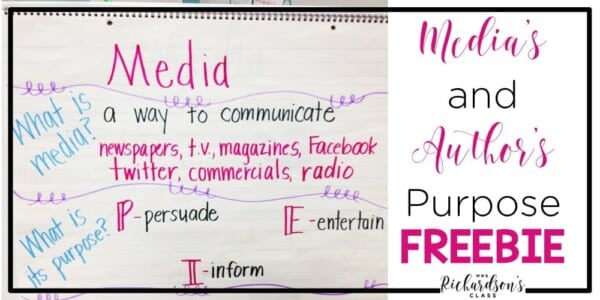 Media
What is
media?
a way to communicate
newspapers, t.v., magazines, Facebook
twitter, commercials, radio
What is
its purpose?
P-persuade
E-entertain
I-inform
Media's
and
Author's
Purpose
FREEBIE
MRS
Richardson's
CLASS